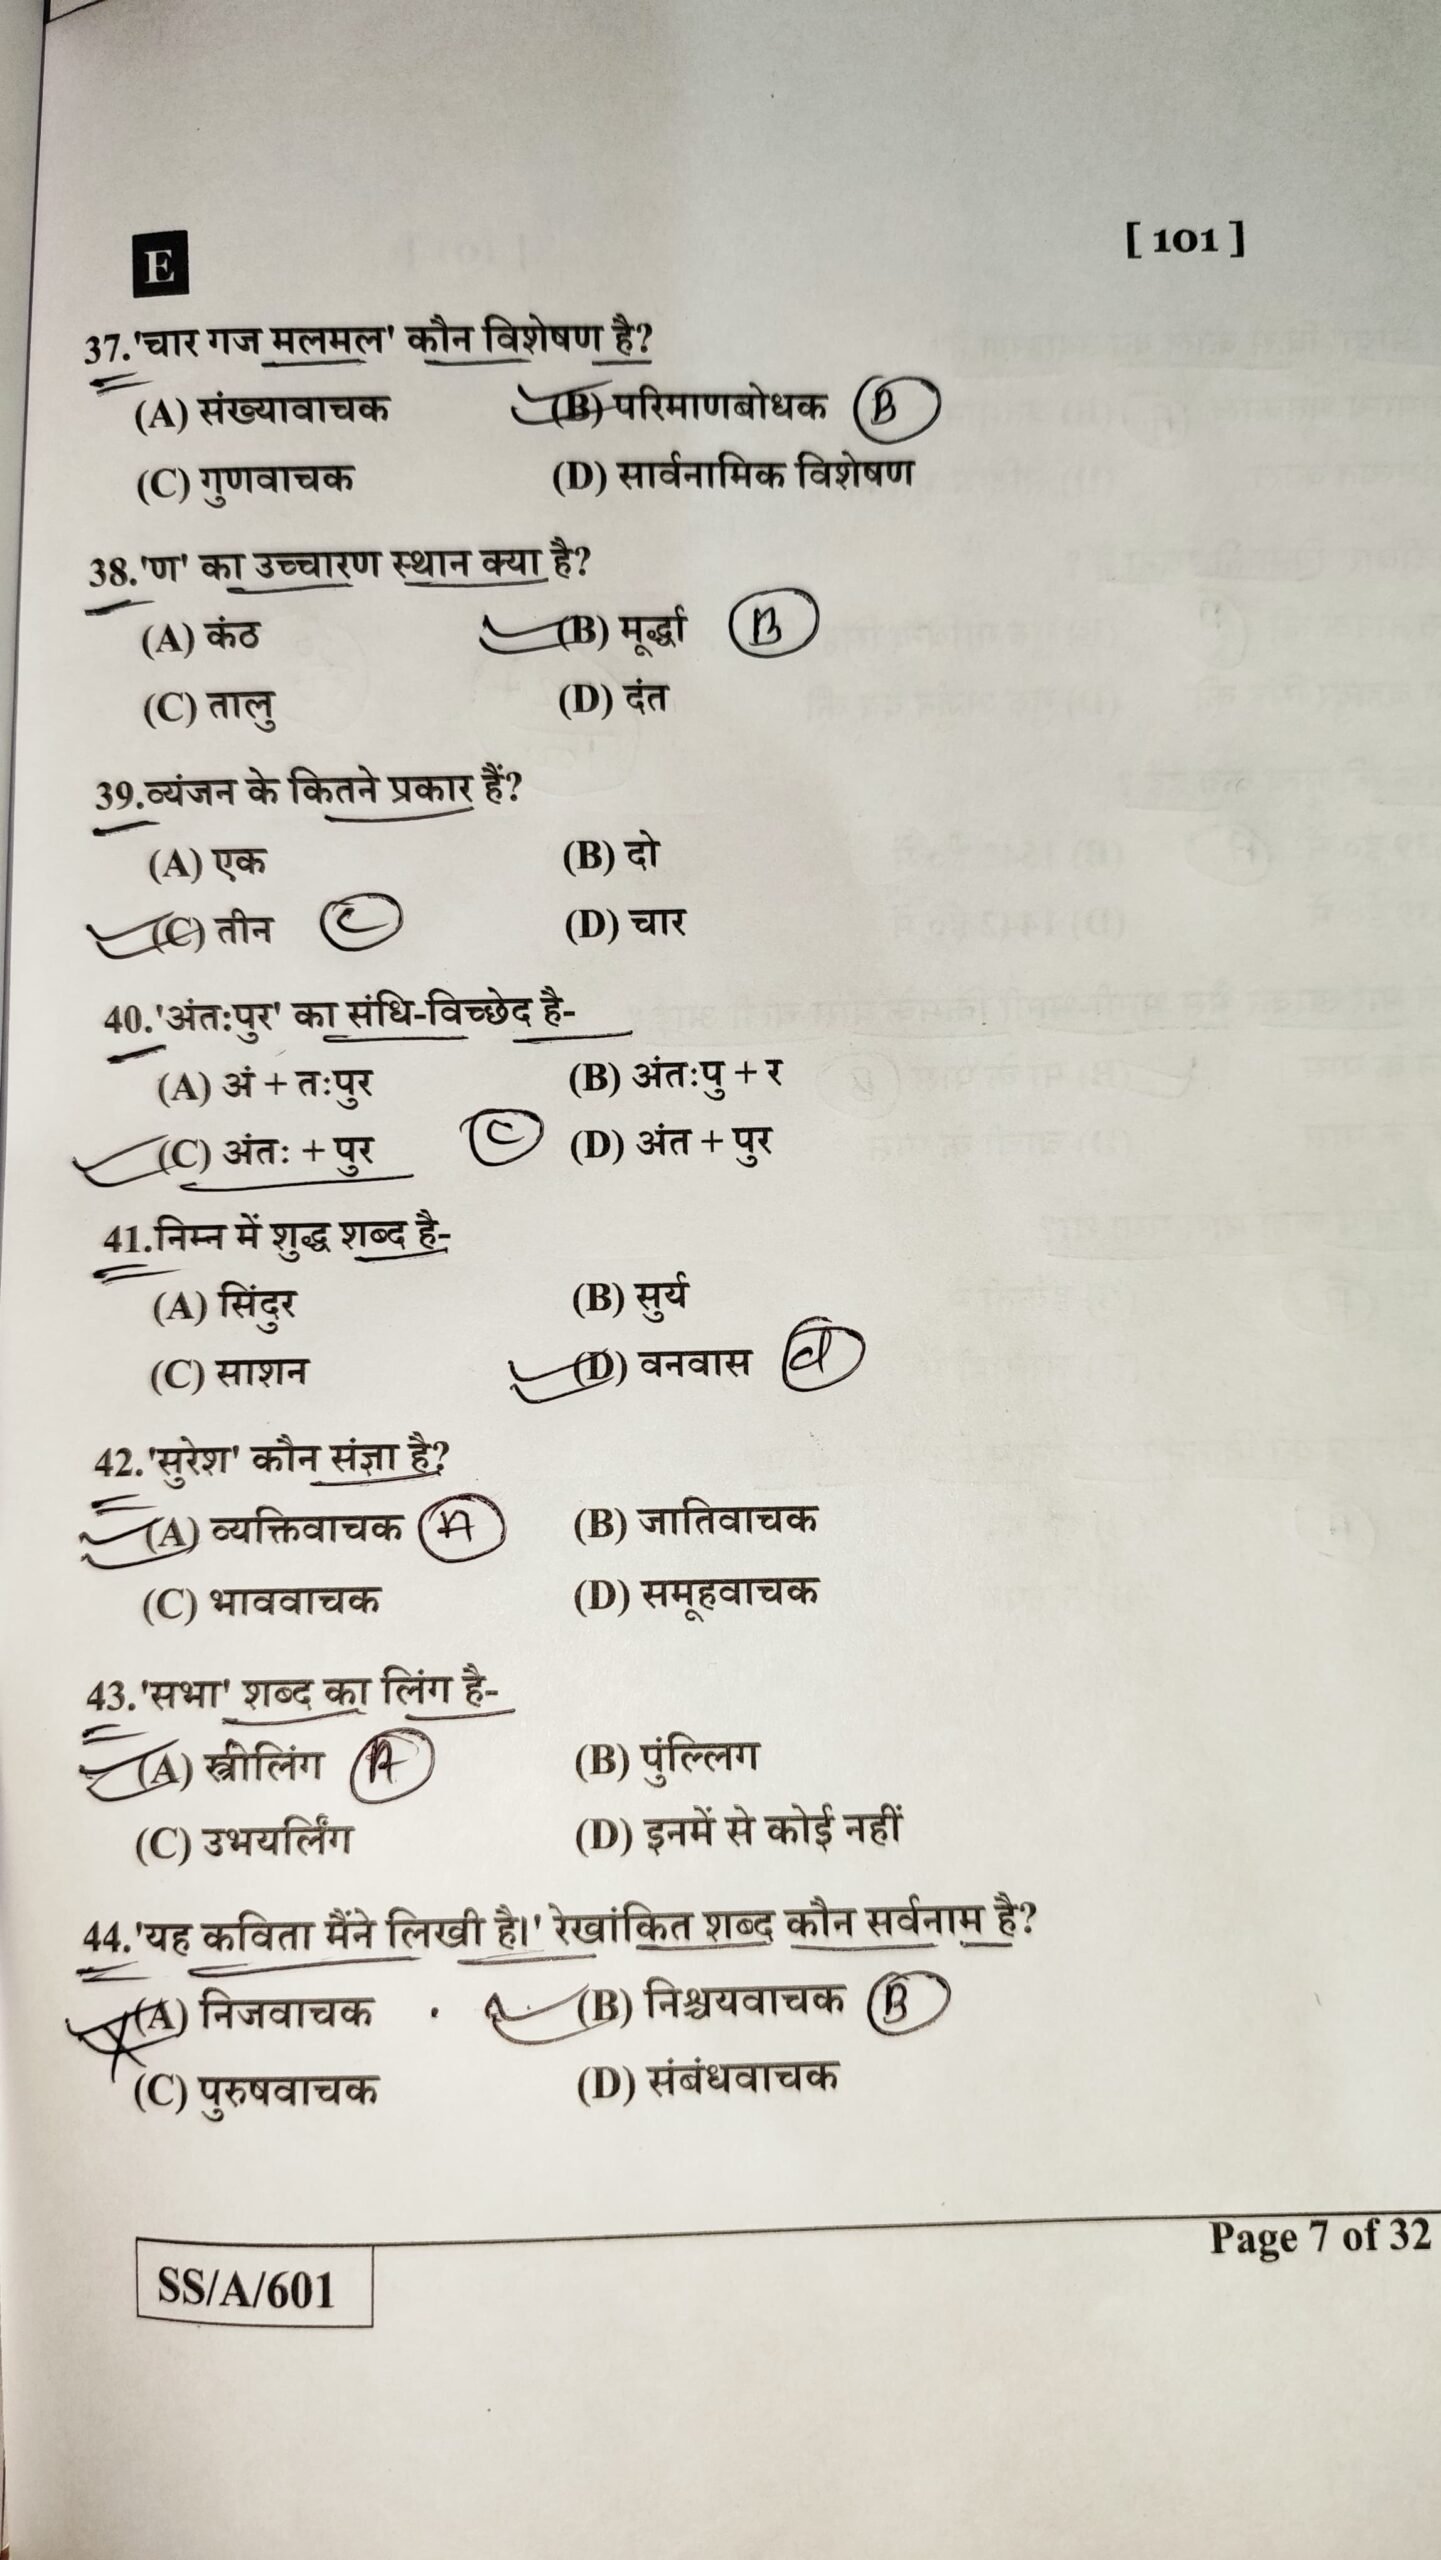 E
[ 101 ]
37.'चार गज मलमल' कौन विशेषण है?
(A) संख्यावाचक (B) परिमाणबोधक B
(C) गुणवाचक (D) सार्वनामिक विशेषण
38.'ण' का उच्चारण स्थान क्या है?
(A) कंठ (B) मूर्द्धा B
(C) तालु (D) दंत
39.व्यंजन के कितने प्रकार हैं?
(A) एक (B) दो
(C) तीन C (D) चार
40.'अंतःपुर' का संधि-विच्छेद है-
(A) अं + तःपुर (B) अंतःपु + र
(C) अंतः + पुर C (D) अंत + पुर
41.निम्न में शुद्ध शब्द है-
(A) सिंदुर (B) सुर्य
(C) साशन (D) वनवास d
42.'सुरेश' कौन संज्ञा है?
(A) व्यक्तिवाचक A (B) जातिवाचक
(C) भाववाचक (D) समूहवाचक
43.'सभा' शब्द का लिंग है-
(A) स्त्रीलिंग A (B) पुंल्लिग
(C) उभयर्लिंग (D) इनमें से कोई नहीं
44.'यह कविता मैंने लिखी है।' रेखांकित शब्द कौन सर्वनाम है?
(A) निजवाचक (B) निश्चयवाचक B
(C) पुरुषवाचक (D) संबंधवाचक
Page 7 of 32
SS/A/601